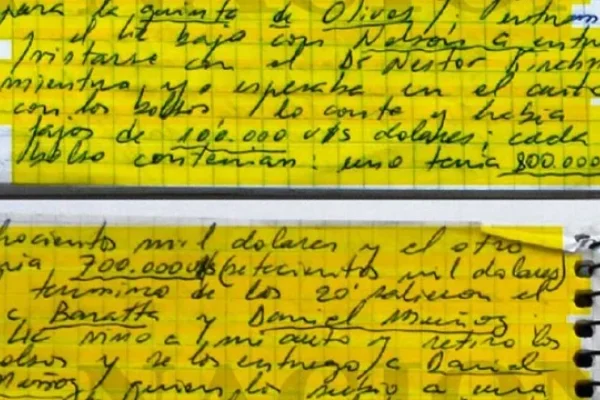 para la quinta de Olivos /. entran
y el Lic bajo con Nelson a entre
/vistarse con el Dr Nestor Kirchn
mientras yo esperaba en el auto
con los bolsos / lo conte y había
fajos de 100.000 u$s dolares; cada
/bolso contenian: uno tenia 800.000
hocientos mil dolares y el otro
nia 700.000 u$s (setecientos mil dolares)
termino de los 20' salieron el
c Baratta y Daniel Muñoz.
Lic vino a mi auto y retiro los
olsos y se los entrego / a Daniel
Muñoz / quien lo subio a una